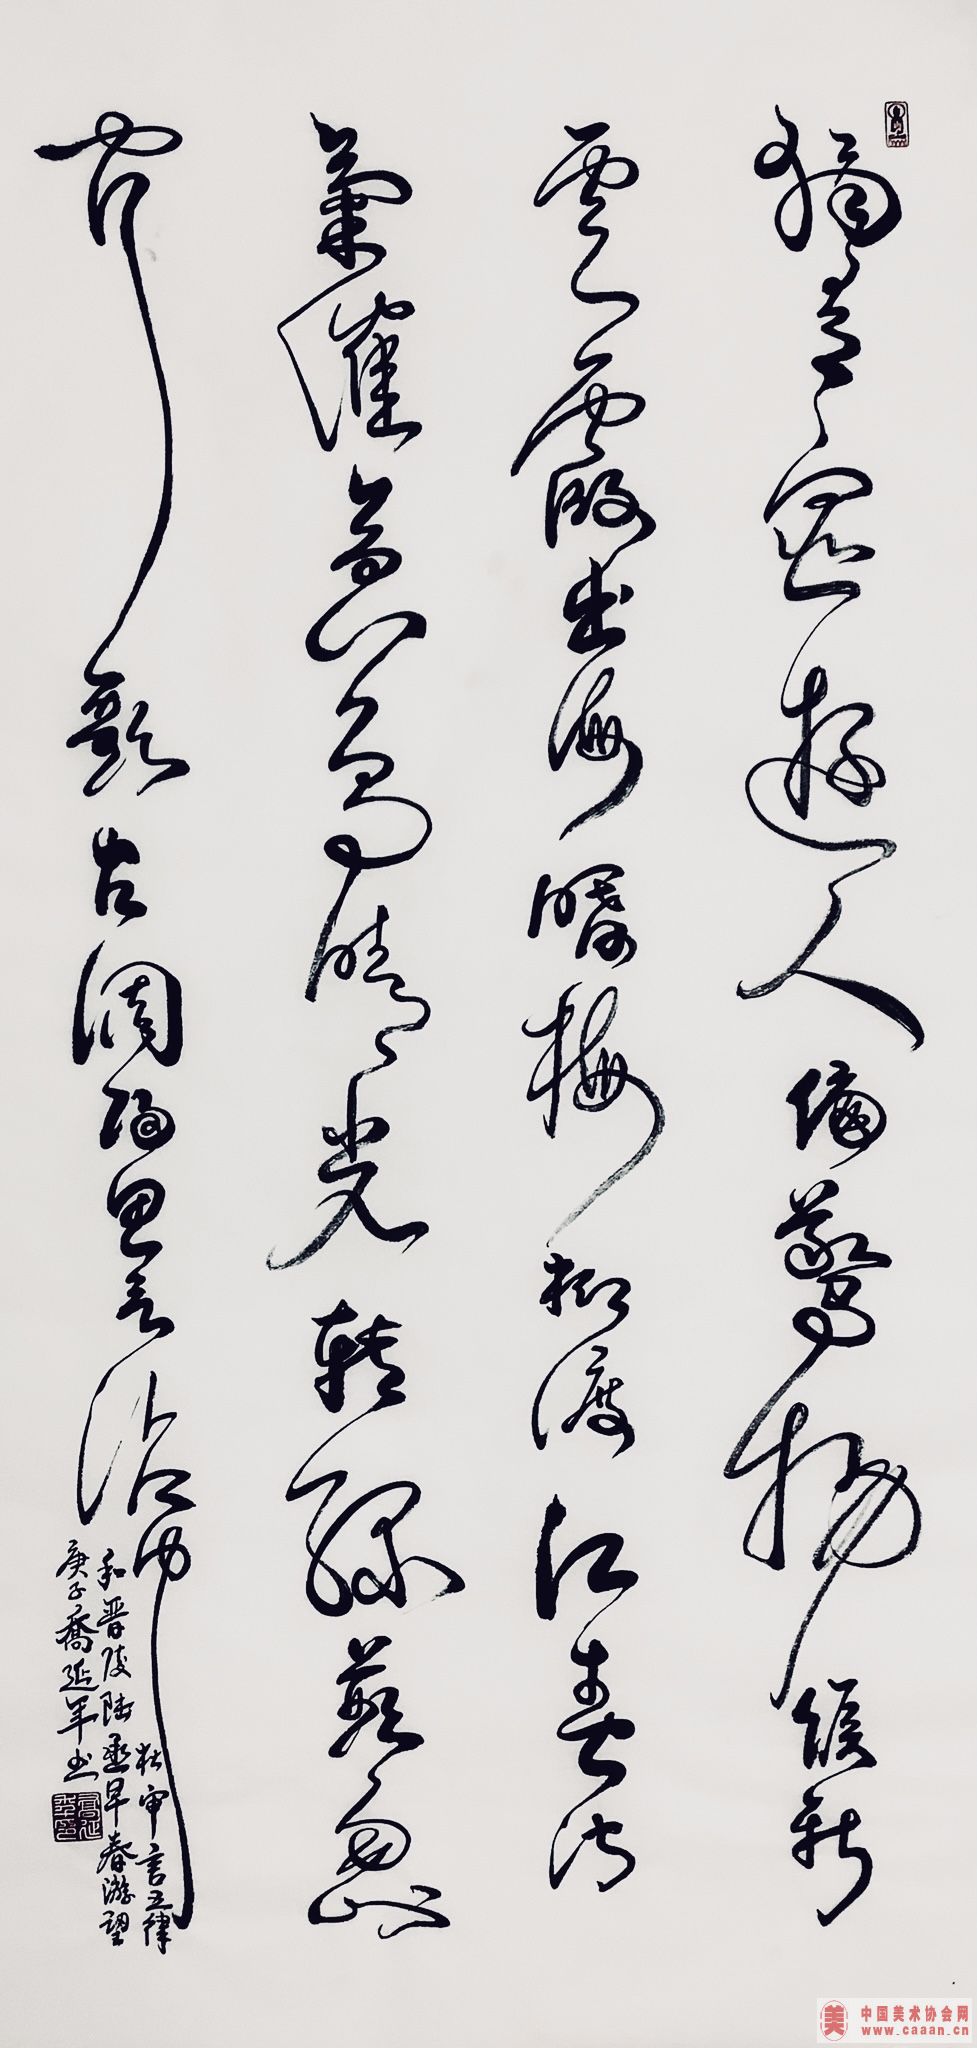 獨有宦遊人偏驚物候新
雲霞出海曙梅柳渡江春淑
氣催黃鳥晴光轉綠蘋忽
聞歌古調歸思欲沾巾
杜审言五律
和晋陵陆丞早春游望
庚子喬延年书
中国美术协会网
www.caaan.cn